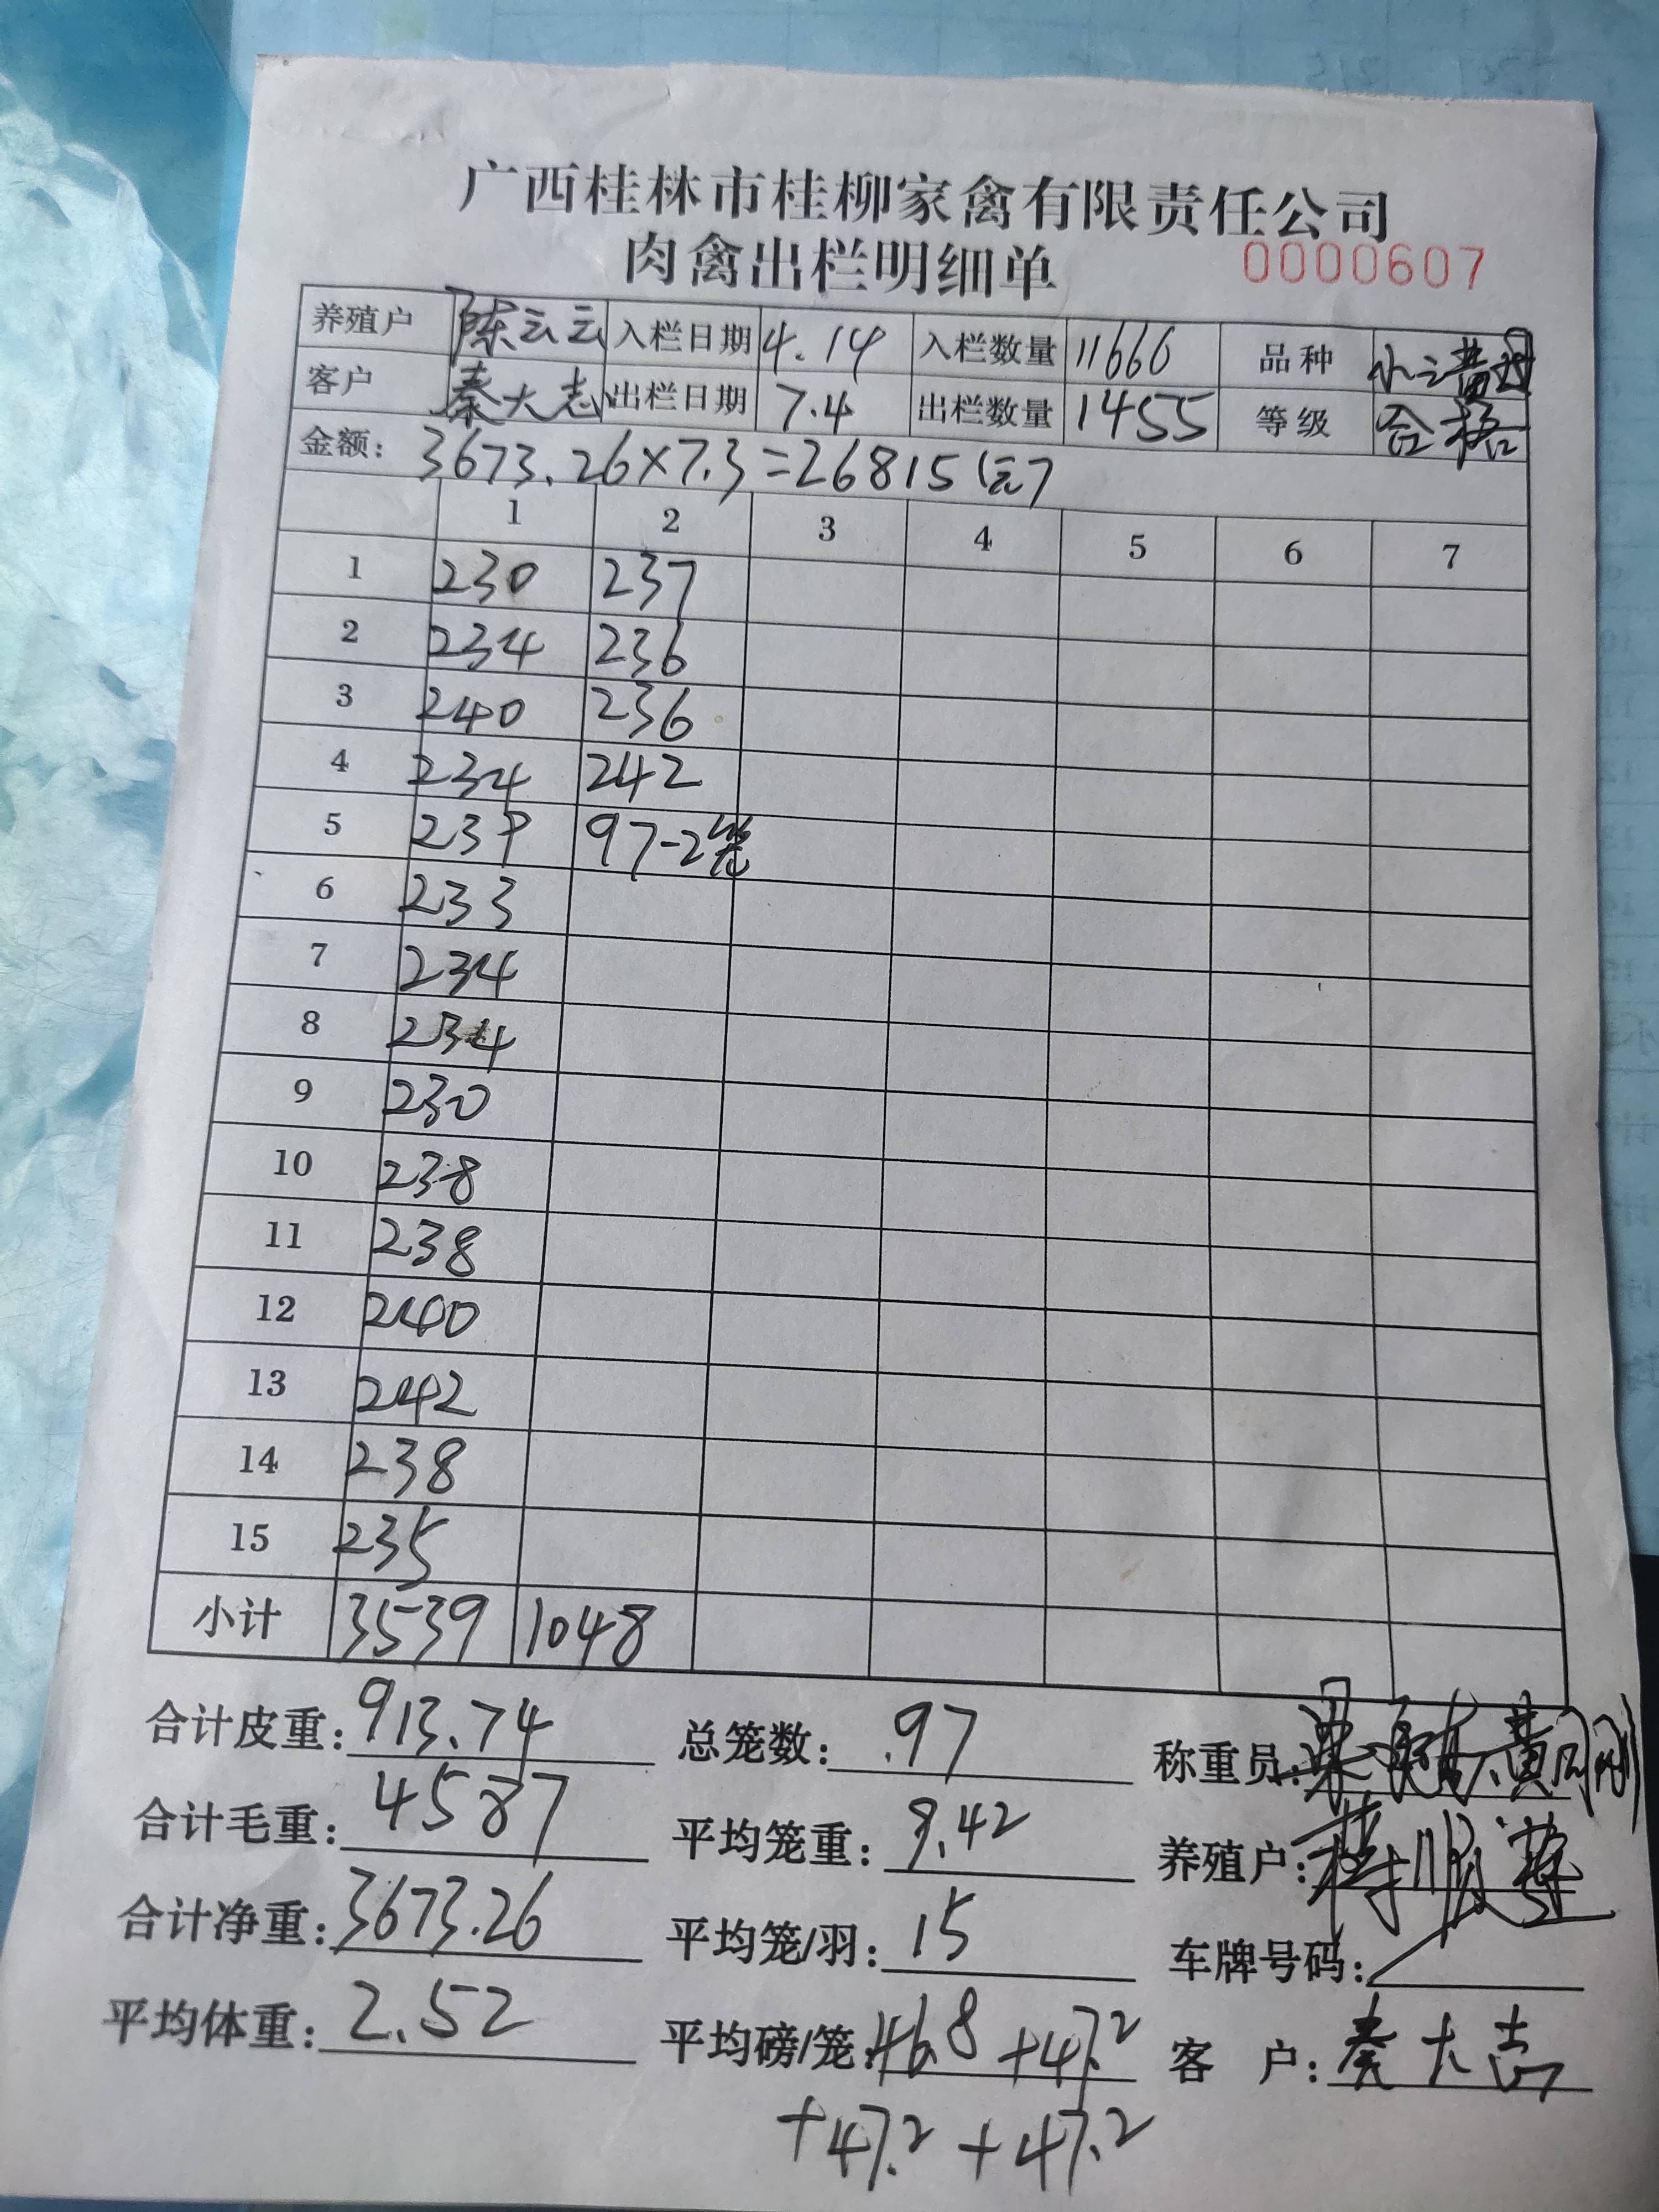 广西桂林市桂柳家禽有限责任公司
肉禽出栏明细单 0000607
养殖户 陈云云 入栏日期 4.14 入栏数量 11660 品种
客户 秦大志 出栏日期 7.4 出栏数量 1455 等级 合格
金额: 3673.26×7.3=26815(元)
1 2 3 4 5 6 7
1 230 237
2 234 236
3 240 236
4 234 242
5 239 97-2笼
6 233
7 234
8 234
9 230
10 238
11 238
12 240
13 242
14 238
15 235
小计 3539 1048
合计皮重: 913.74 总笼数: 97 称重员:
合计毛重: 4587 平均笼重: 9.42 养殖户:
合计净重: 3673.26 平均笼/羽: 15 车牌号码:
平均体重: 2.52 平均磅/笼: 46.8+47.2 客 户: 秦大志
+47.2+47.2